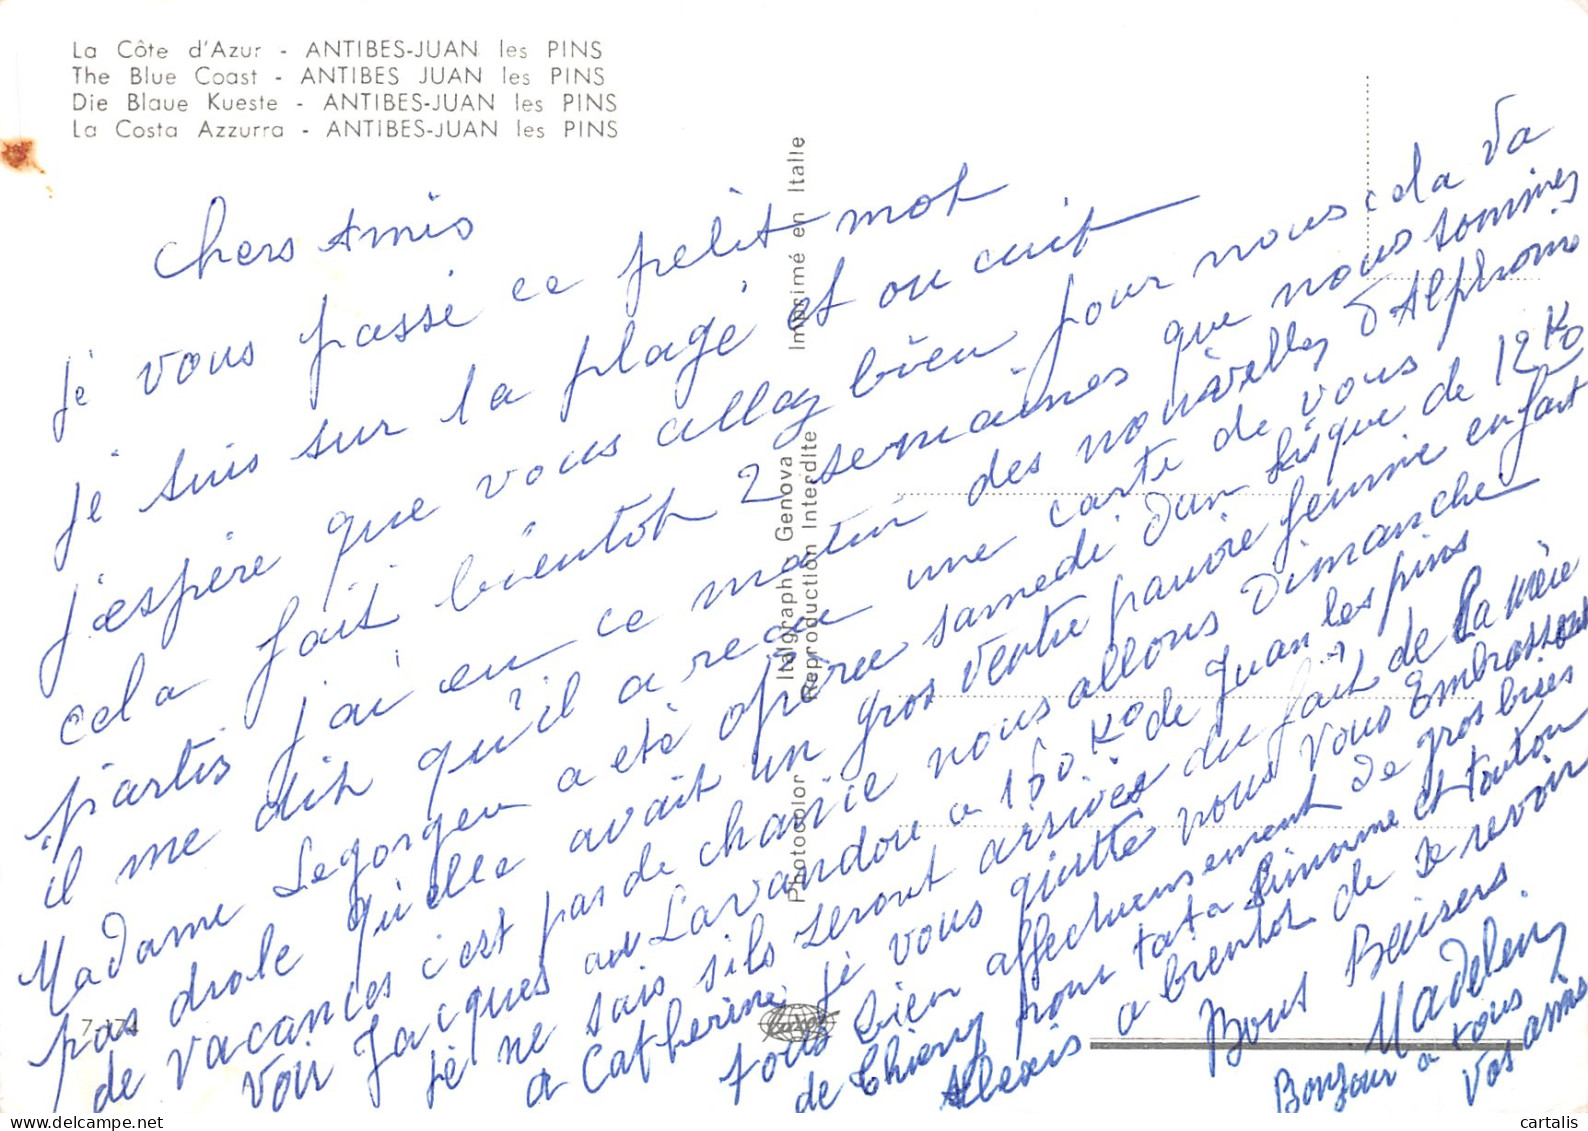 La Côte d'Azur - ANTIBES-JUAN les PINS
The Blue Coast - ANTIBES JUAN les PINS
Die Blaue Kueste - ANTIBES-JUAN les PINS
La Costa Azzurra - ANTIBES-JUAN les PINS
Chers Amis
je vous passe ce petit mot
je suis sur la plage et on cuit
j'espère que vous allez bien pour nous cela va
cela fait bientot 2 semaines que nous sommes
partis j'ai eu ce matin des nouvelles d'Alphonse
il me dit qu'il a reçu une carte de vous
Madame Legorgeu a eté opérée samedi d'un kisque de 12 Ko
pas drole qu'elle avait un gros ventre pauvre femme en fait
de vacances c'est pas de chance nous allons Dimanche
voir Jacques au Lavandore a 150 Ko de Juan les pins
je ne sais s'ils seront arrivés du fait de la mère
a Catherine je vous quitte nous vous Embrassons
tous bien affectueusement de gros bises
de Thierry pour tata Simone et tonton
Alexis a bientot de se revoir
Bons Baisers.
Madeleine
Bonjour a tous
Vos amis
Photocolor
Italgraph Genova
Reproduction Interdite
Imprimé en Italie
7-174
cartalis